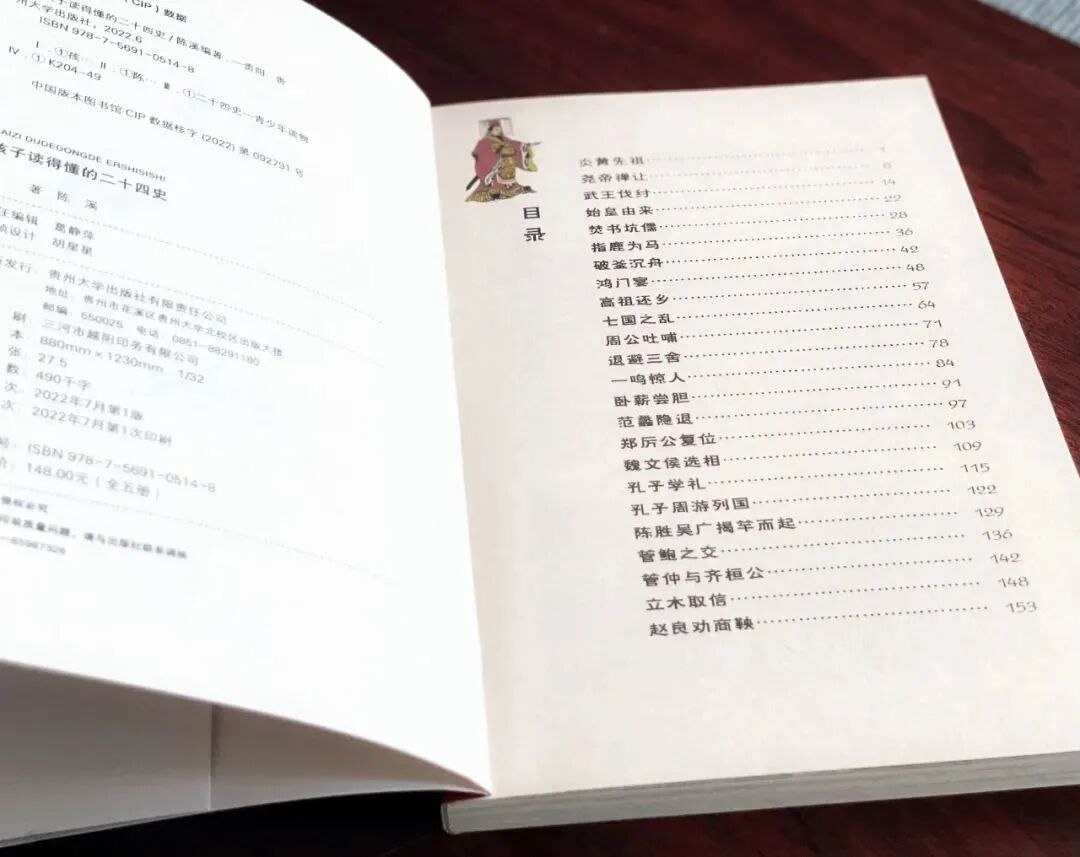 (CIP)数据
子读得懂的二十四史/陈溪编著.—贵阳 贵
州大学出版社，2022.6
ISBN 978-7-5691-0514-8
Ⅰ.①孩… Ⅱ.①陈… Ⅲ.①二十四史—青少年读物
Ⅳ.①K204-49
中国版本图书馆CIP数据核字(2022)第092791号
AIZI DUDEDONGDE ERSHISISHI
孩子读得懂的二十四史
著 陈 溪
任编辑 葛静萍
帧设计 胡星星
发行：贵州大学出版社有限责任公司
地址：贵州市花溪区贵州大学北校区出版大楼
邮编：550025 电话：0851-88291180
刷 三河市越阳印务有限公司
本：880mm×1230mm 1/32
张：27.5
数：490千字
次：2022年7月第1版
次：2022年7月第1次印刷
号：ISBN 978-7-5691-0514-8
价：148.00元（全五册）
侵权必究
质量问题，请与出版社联系调换
目录
炎黄先祖……1
尧帝禅让……8
武王伐纣……14
始皇由来……22
焚书坑儒……28
指鹿为马……36
破釜沉舟……42
鸿门宴……48
高祖还乡……57
七国之乱……64
周公吐哺……71
退避三舍……78
一鸣惊人……84
卧薪尝胆……91
范蠡隐退……97
郑厉公复位……103
魏文侯选相……109
孔子学礼……115
孔子周游列国……122
陈胜吴广揭竿而起……129
管鲍之交……136
管仲与齐桓公……142
立木取信……148
赵良劝商鞅……153